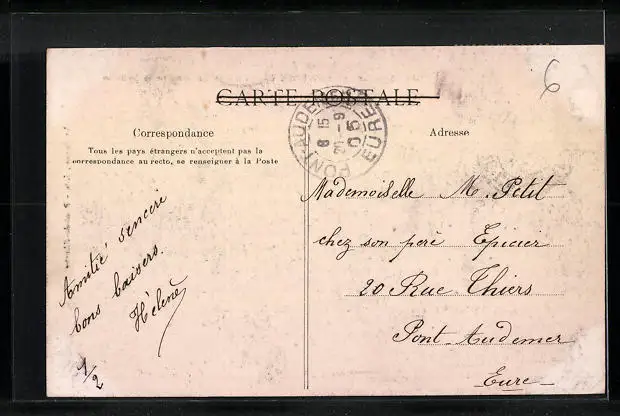 6
CARTE POSTALE
Correspondance
Adresse
Tous les pays étrangers n'acceptent pas la
correspondance au recto, se renseigner à la Poste
PONT-AUDEMER
8 15
9
05
EURE
Amitié sincère
bons baisers.
Hélène
1/2
Mademoiselle M. Petit
chez son père Epicier
20 Rue Thiers
Pont-Audemer
Eure